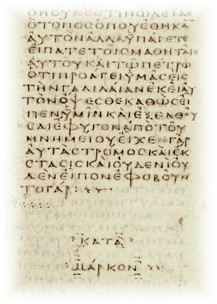 ΟΤΟΠΟϹΟΠΟΥΕΘΗΚΑ
ΑΥΤΟΝΑΛΛΑΥΠΑΓΕΤΕ
ΕΙΠΑΤΕΤΟΙϹΜΑΘΗΤΑΙϹ
ΑΥΤΟΥΚΑΙΤΩΠΕΤΡΩ
ΟΤΙΠΡΟΑΓΕΙΥΜΑϹΕΙϹ
ΤΗΝΓΑΛΙΛΑΙΑΝΕΚΕΙΑΥ
ΤΟΝΟΨΕϹΘΕΚΑΘΩϹΕΙ
ΠΕΝΥΜΙΝΚΑΙΕΞΕΛΘΟΥ
ϹΑΙΕΦΥΓΟΝΑΠΟΤΟΥ
ΜΝΗΜΕΙΟΥΕΙΧΕΝΓΑΡ
ΑΥΤΑϹΤΡΟΜΟϹΚΑΙΕΚ
ϹΤΑϹΙϹΚΑΙΟΥΔΕΝΙΟΥ
ΔΕΝΕΙΠΟΝΕΦΟΒΟΥΝ
ΤΟΓΑΡ:
ΚΑΤΑ
ΜΑΡΚΟΝ